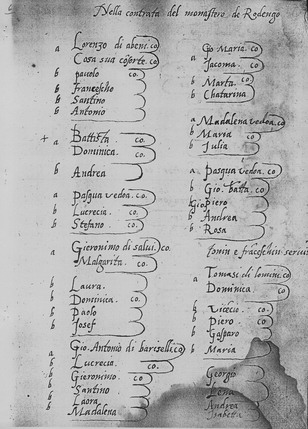 Nella contrata del monastero de Rodengo
a Lorenzo di abeni. co
Cosa sua cosorte. co.
b paulo co.
b francescho
b Santino
b Antonio
+ a Battista. co.
Dominica. co.
b Andrea
a Pasqua vedoa. co.
b Lucrecia. co.
b Stefano. co.
a Gieronimo di salui. co.
Malgarita. co.
b Laura.
b Dominica. co.
b Paolo
b Josef
a Gio. Antonio di barizelli. co
b Lucrecia. co.
b Gieronimo. co.
b Santino
b Laora.
b Madalena
Gio Maria. co
a Jacoma. co.
b Marta. co.
b Chatarina.
a Madalena vedoa. co.
b Maria co.
b Julia
a. Pasqua vedoa. co.
b Gio. batta. co.
b Gio piero
b Andrea
b Rosa
Tonin e fraceschin
a Tomasi di lomini. co
Dominica co.
b Vicecio. co.
b Piero. co.
b Gasparo
b Maria
Georgio
Lena
Andrea